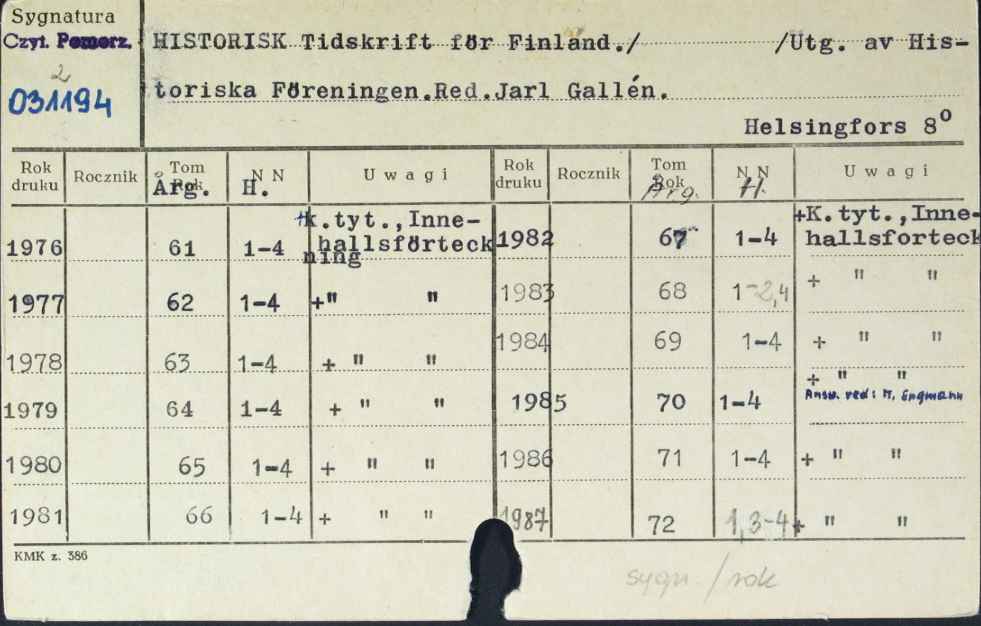 Sygnatura
Czyt. Pomorz.
2
031194
HISTORISK Tidskrift för Finland./ /Utg. av His-
toriska Föreningen.Red.Jarl Gallén.
Helsingfors 8⁰
Rok druku Rocznik Tom Rok Årg. N N H. Uwagi Rok druku Rocznik Tom Rok Årg. N N H. Uwagi
1976 61 1-4 +k.tyt.,Inne-
hallsförteck
ning
1982 67 1-4 +K.tyt.,Inne-
hallsforteck
1977 62 1-4 +" "
1983 68 1-2,4 + " "
1978 63 1-4 + " "
1984 69 1-4 + " "
1979 64 1-4 + " "
1985 70 1-4 + " "
Answ. red: M. Engmann
1980 65 1-4 + " "
1986 71 1-4 + " "
1981 66 1-4 + " "
1987 72 1,3-4 + " "
KMK z. 386
sygn./rok